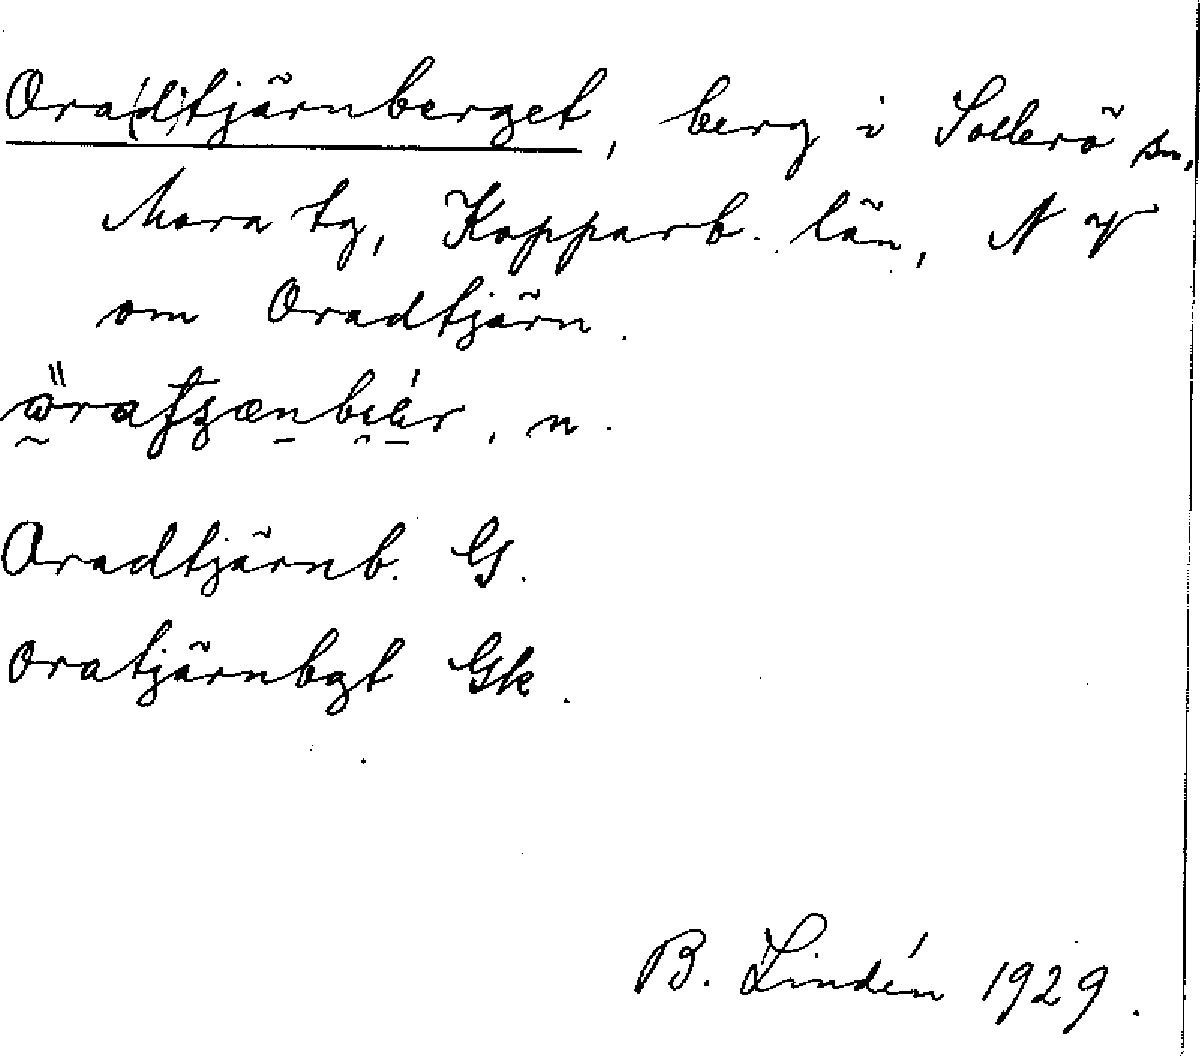 Ora(d)tjärnberget, berg i Sollerö sn,
Mora tg, Kopparb. län, N V
om Oradtjärn.
n.
Oradtjärnb. G.
Oratjärnbgt Gk.
B. Lindén 1929.